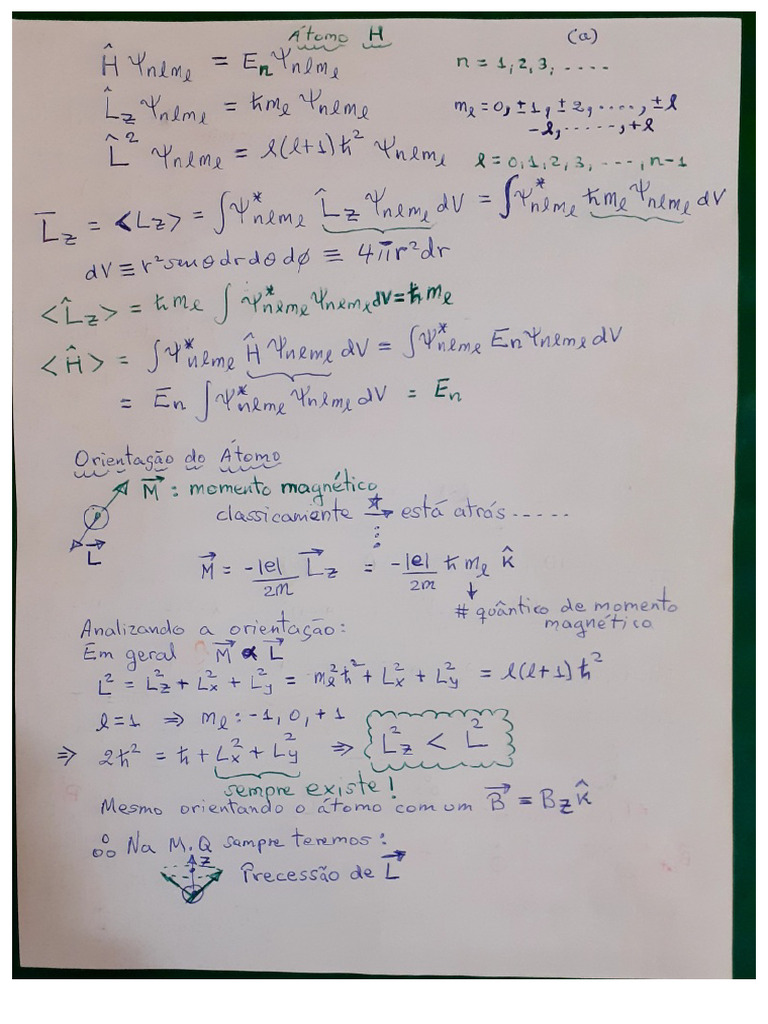 Átomo H (a)
Ĥ Ψnlmℓ = En Ψnlmℓ n = 1, 2, 3, ....
L̂z Ψnlmℓ = ħmℓ Ψnlmℓ mℓ = 0, ±1, ±2, ...., ±ℓ
-ℓ, ....., +ℓ
L̂² Ψnlmℓ = ℓ(ℓ+1)ħ² Ψnlmℓ ℓ = 0, 1, 2, 3, ..., n-1
L̄z = <Lz> = ∫Ψ*nlmℓ L̂z Ψnlmℓ dV = ∫Ψ*nlmℓ ħmℓ Ψnlmℓ dV
dV ≡ r² senθ dr dθ dφ ≡ 4πr²dr
<L̂z> = ħmℓ ∫ Ψ*nlmℓ Ψnlmℓ dV = ħmℓ
<Ĥ> = ∫Ψ*nlmℓ Ĥ Ψnlmℓ dV = ∫Ψ*nlmℓ En Ψnlmℓ dV
= En ∫Ψ*nlmℓ Ψnlmℓ dV = En
Orientação do Átomo
M⃗ : momento magnético
classicamente está atrás .....
L⃗
M⃗ = -|e|/2m L⃗z = -|e|/2m ħmℓ k̂
# quântico de momento
magnético
Analizando a orientação:
Em geral M⃗ ∝ L⃗
L² = Lz² + Lx² + Ly² = mℓ²ħ² + Lx² + Ly² = ℓ(ℓ+1)ħ²
ℓ=1 ⇒ mℓ: -1, 0, +1
⇒ 2ħ² = ħ + Lx² + Ly² ⇒ Lz² < L²
sempre existe!
Mesmo orientando o átomo com um B⃗ = Bz k̂
∴ Na M.Q sampre teremos:
z
Precessão de L⃗